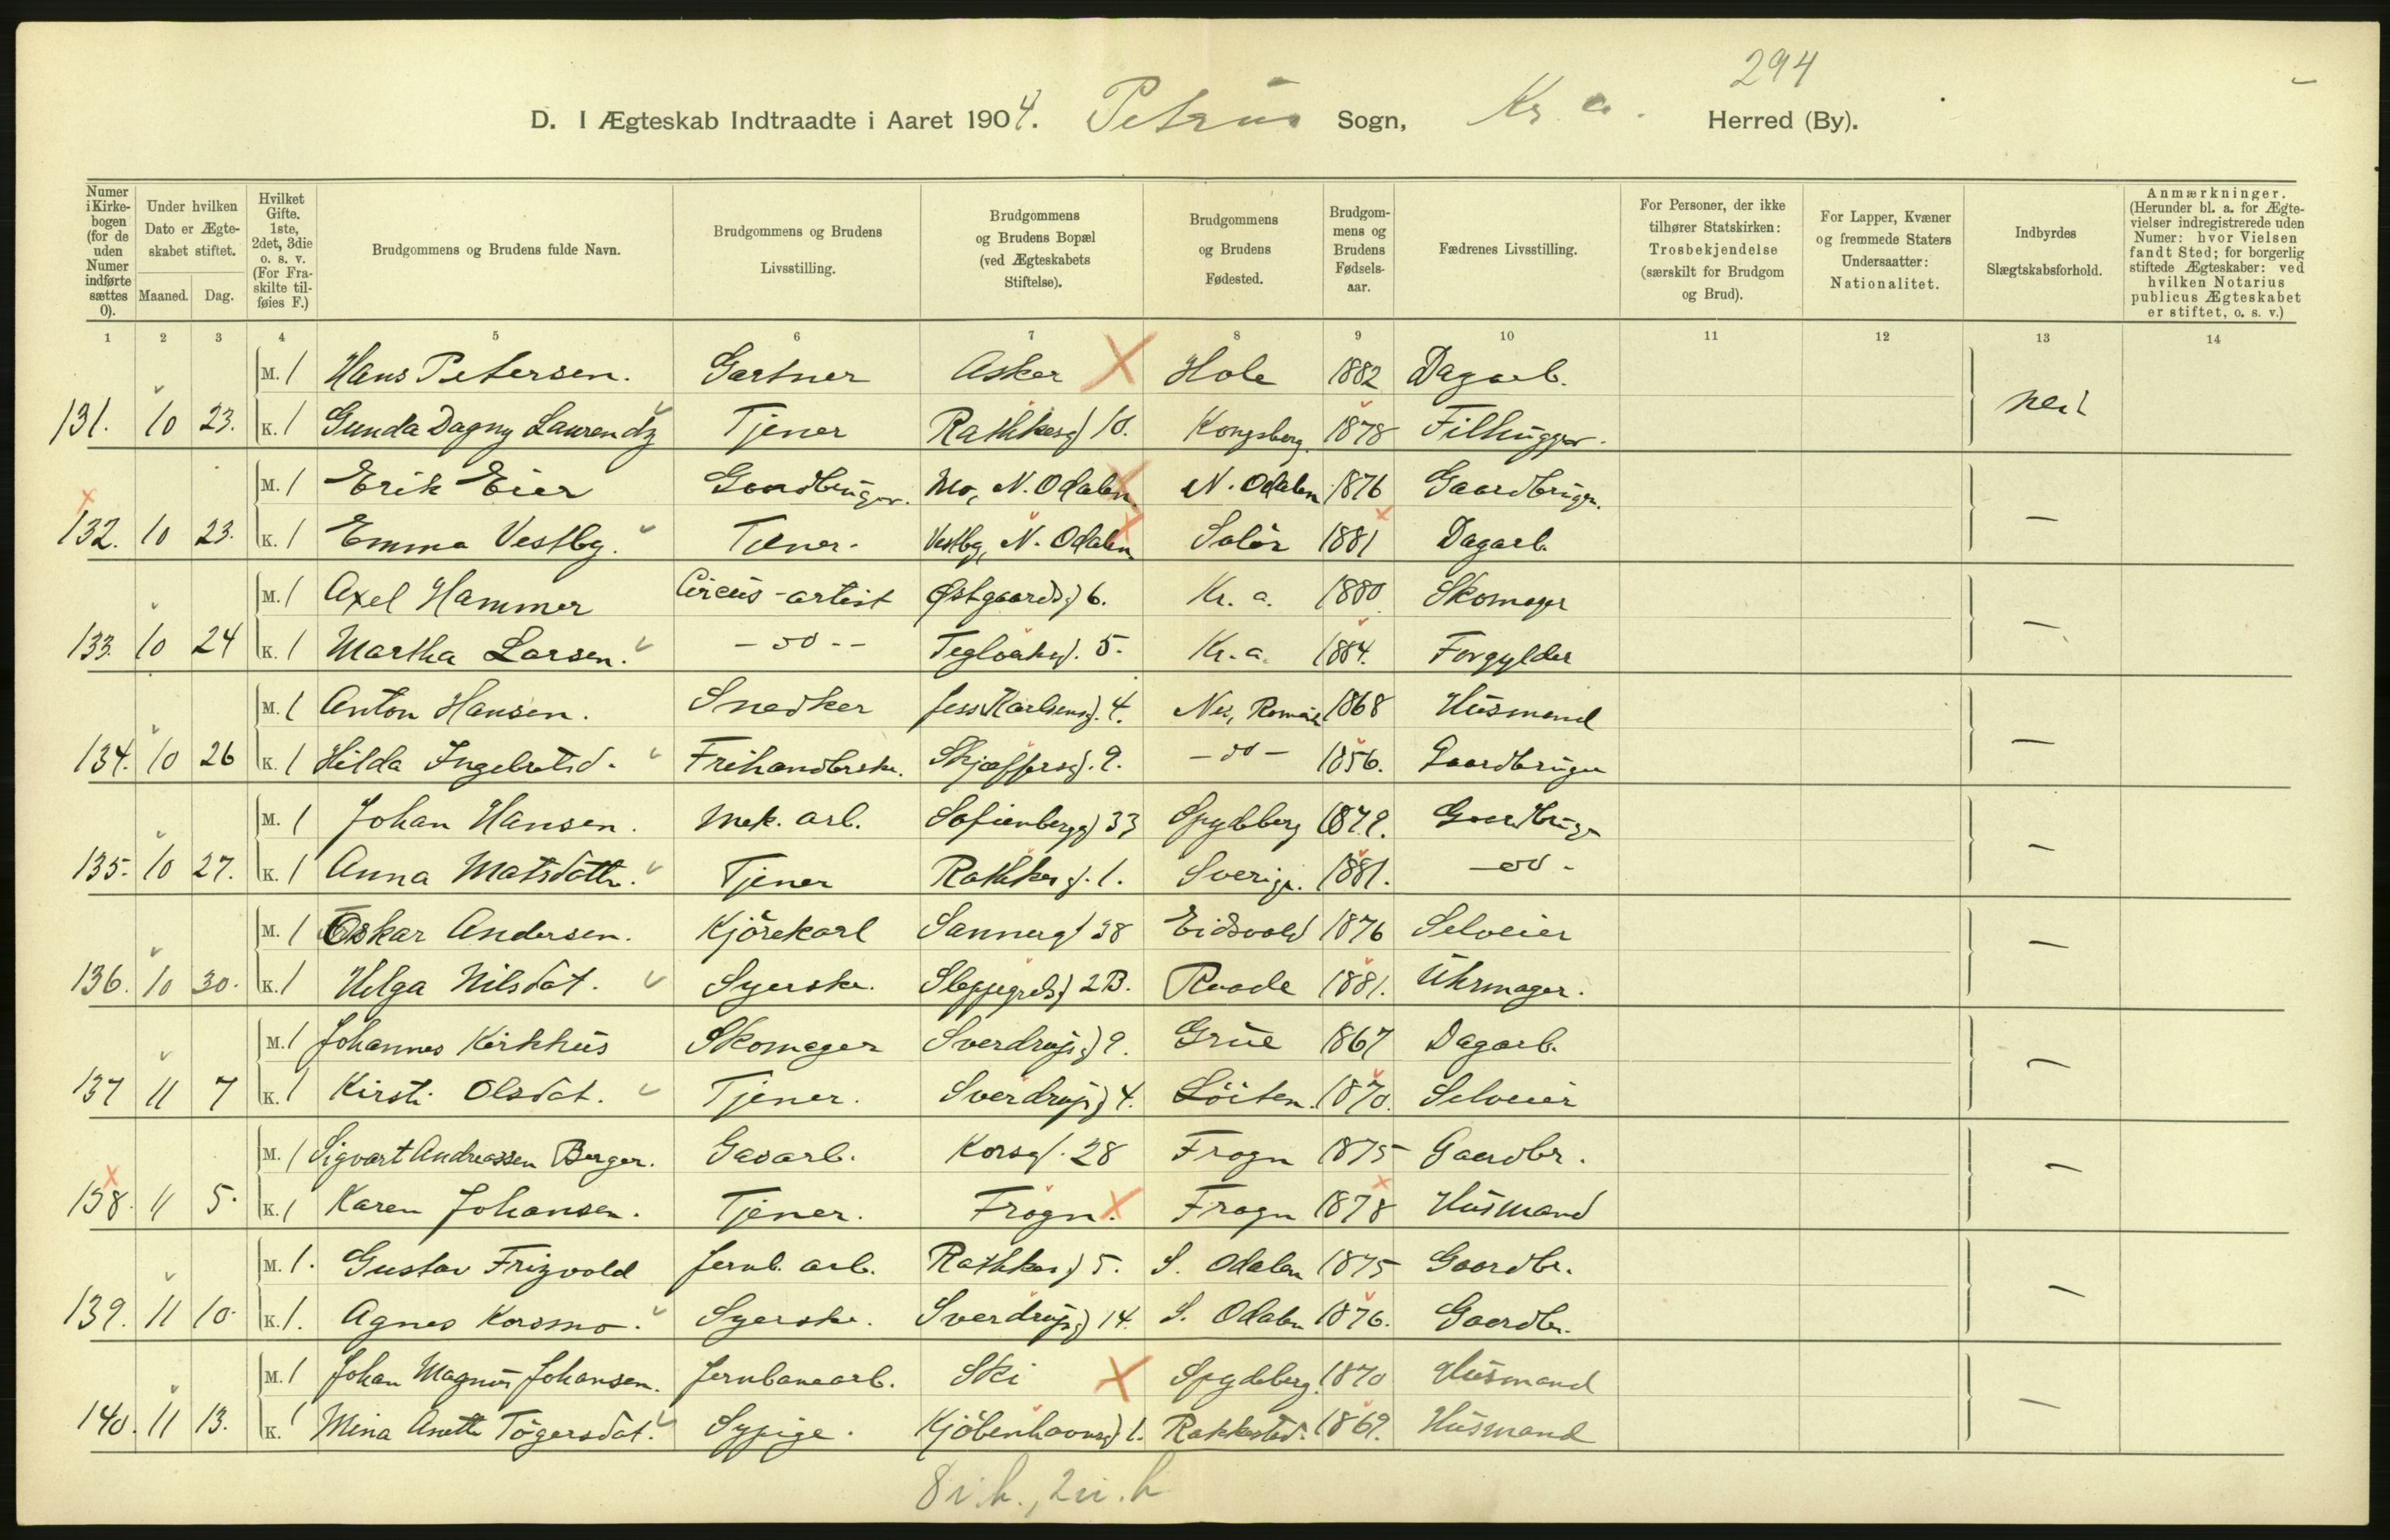 294
D. I Ægteskab Indtraadte i Aaret 1904. Petrus Sogn, Kr. a. Herred (By).
Numer i Kirkebogen (for de uden Numer indførte sættes 0).
Under hvilken Dato er Ægteskabet stiftet.
Maaned. Dag.
Hvilket Gifte. 1ste, 2det, 3die o. s. v. (For Fraskilte tilføies F.)
Brudgommens og Brudens fulde Navn.
Brudgommens og Brudens Livsstilling.
Brudgommens og Brudens Bopæl (ved Ægteskabets Stiftelse).
Brudgommens og Brudens Fødested.
Brudgommens og Brudens Fødselsaar.
Fædrenes Livsstilling.
For Personer, der ikke tilhører Statskirken: Trosbekjendelse (særskilt for Brudgom og Brud).
For Lapper, Kvæner og fremmede Staters Undersaatter: Nationalitet.
Indbyrdes Slægtskabsforhold.
Anmærkninger. (Herunder bl. a. for Ægtevielser indregistrerede uden Numer: hvor Vielsen fandt Sted; for borgerlig stiftede Ægteskaber: ved hvilken Notarius publicus Ægteskabet er stiftet, o. s. v.)
1 2 3 4 5 6 7 8 9 10 11 12 13 14
M. 1 Hans Petersen. Gartner Asker Hole 1882 Dagarb.
131. 10 23. K. 1 Gunda Dagny Laurendz Tjener Rathkesg 10. Kongsberg. 1878 Filhugger. nei
M. 1 Erik Eier Gaardbruger. Mo, N. Odalen N. Odalen 1876 Gaardbruger.
132. 10 23. K. 1 Emma Vestby. Tjener. Vestby, N. Odalen Solör 1881 Dagarb. —
M. 1 Axel Hammer Circus-artist Østgaardsg 6. Kr. a. 1880 Skomager
133. 10 24 K. 1 Martha Larsen. - do - - 5. Kr. a. 1884. Forgylder —
M. 1 Anton Hansen. Snedker Jess Karlsensg. 4. Nes, 1868 Husmand
134. 10 26 K. 1 Hilda Ingebretsd. Frihandlerske. Skjæffersg. 9. - do - 1856. Gaardbruger —
M. 1 Johan Hansen. Mek. arb. Sofienbergg 33 Spydeberg 1879. Gaardbruger
135. 10 27. K. 1 Anna Matsdottr. Tjener Rathkesg. 1. Sverige. 1881. - do - —
M. 1 Oskar Andersen. Kjörekarl Sannerg 38 Eidsvold 1876 Selveier
136. 10 30. K. 1 Helga Nilsdat. Syerske. Sleppegrelsg 2B. Raade 1881. Uhrmager. —
M. 1 Johannes Kirkhus Skomager Sverdrupsg 9. Grue 1867 Dagarb.
137 11 7 K. 1 Kirsti Olsdat. Tjener. Sverdrupsg 4. Löiten. 1870. Selveier —
M. 1 Sigvart Andreassen Berger. Gasarb. Korsg. 28 Frogn 1875 Gaardbr.
138. 11 5. K. 1 Karen Johansen. Tjener. Frogn. Frogn 1878 Husmand —
M. 1. Gustav Frizvold Jernb. arb. Rathkesg 5. S. Odalen 1875 Gaardbr.
139. 11 10. K. 1. Agnes Korsmo. Syerske. Sverdrupsg 14. S. Odalen 1876. Gaardbr. —
M. 1 Johan Magnus Johansen. Jernbanearb. Ski Spydeberg. 1870 Husmand
140. 11 13. K. 1 Mina Anette Tögersdat. Sypige. Kjöbenhavnsg 1. Rakkestad. 1869. Husmand —
8 i. h., 2 u. h